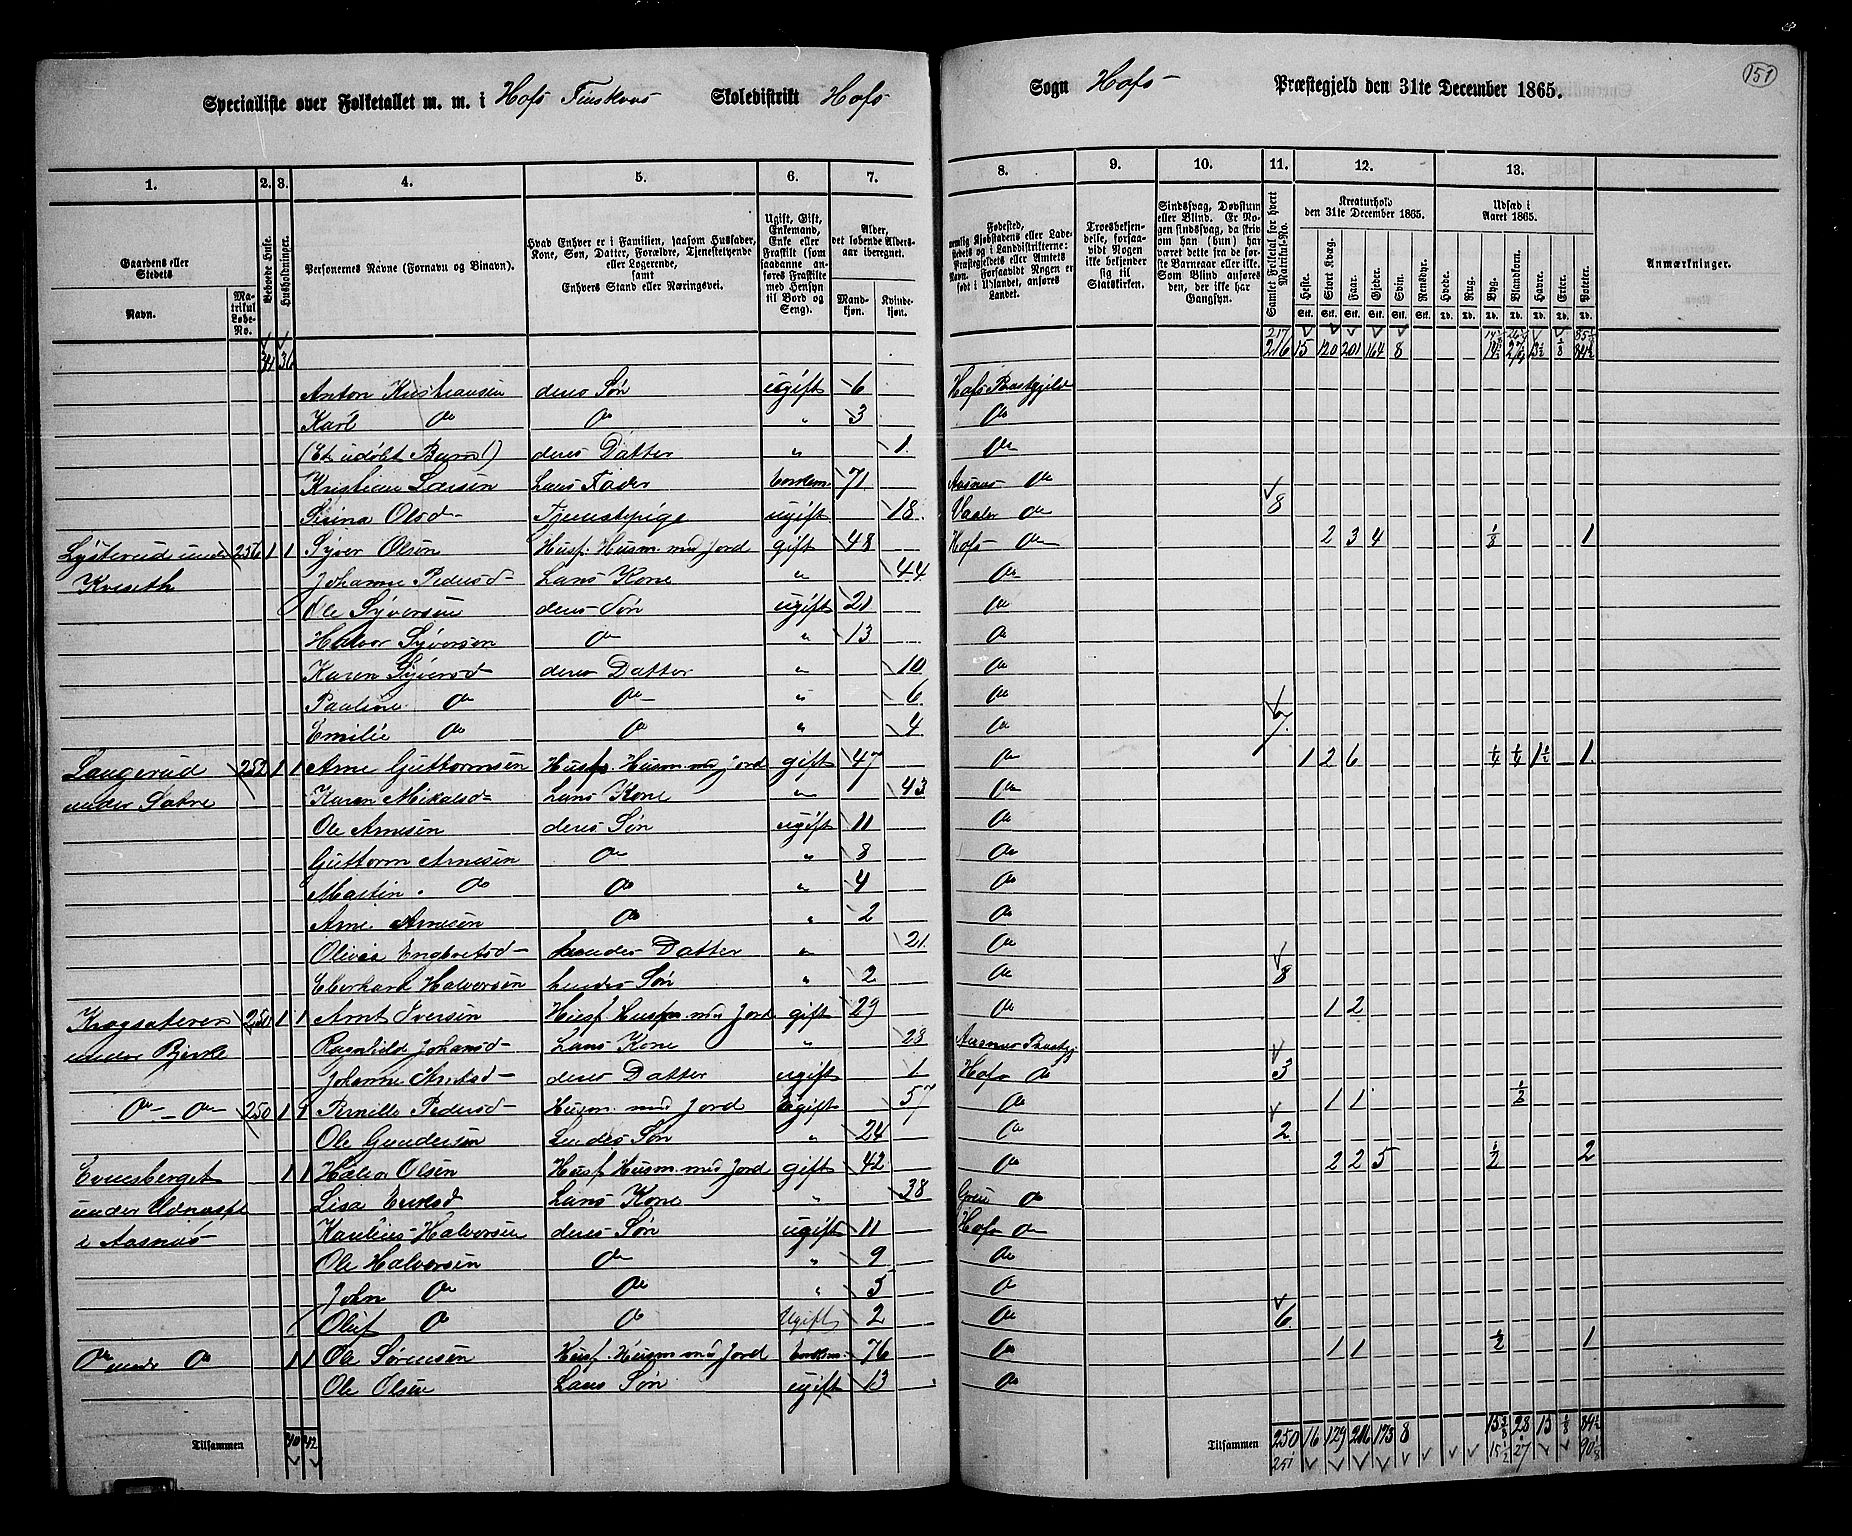 151
Specialliste over Folketallet m. m. i Hofs Finskovs Skoledistrikt Hofs Sogn Hofs Præstegjeld den 31te December 1865.
1. 2. 3. 4. 5. 6. 7. 8. 9. 10. 11. 12. 13.
Gaardens eller Stedets
Navn.
Matrikul Løbe-No.
Beboede Huse.
Husholdninger.
Personernes Navne (Fornavn og Binavn).
Hvad Enhver er i Familien, saasom Husfader, Kone, Søn, Datter, Forældre, Tjenestetyende eller Logerende, samt Enhvers Stand eller Næringsvei.
Ugift, Gift, Enkemand, Enke eller Fraskilt (som saadanne anføres Fraskilte med Hensyn til Bord og Seng).
Alder, det løbende Aldersaar iberegnet.
Mandkjøn.
Kvindekjøn.
Fødested, nemlig Kjøbstadens eller Ladestedets og i Landdistrikterne: Præstegjeldets eller Amtets Navn. Forsaavidt Nogen er født i Udlandet, anføres Landet.
Troesbekjendelse, forsaavidt Nogen ikke bekjender sig til Statskirken.
Sindssvag, Døvstum eller Blind. Er Nogen sindssvag, da skriv om han (hun) har været dette fra de første Barneaar eller ikke. Som Blind anføres den, der ikke har Gangsyn.
Samlet Folketal for hvert Matrikul-No.
Kreaturhold den 31te December 1865.
Heste. Stort Kvæg. Faar. Gjeder. Svin. Rensdyr.
Udsæd i Aaret 1865.
Hvede. Rug. Byg. Blandkorn. Havre. Erter. Poteter.
Anmærkninger.
34 36 216 15 120 201 164 8
Anton Kristiansen deres Søn ugift 6 Hofs Præstgjeld
Karl Do Do " 3 Do
(Et udøbt Barn) deres Datter " 1 Do
Kristian Larsen hans Fader Enkem 71 Aasnes Do
Serina Olsd Tjenestepige ugift 18 Vaaler Do 8
Lysterud under 256 1 1 Syver Olsen Husf. Husm. med Jord gift 48 Hofs Do 2 3 4 1/8 1
Kveseth Johanne Pedersd hans Kone " 44 Do
Ole Syversen deres Søn ugift 21 Do
Halvor Syversen Do " 13 Do
Karen Syversd deres Datter " 10 Do
Pauline Do Do " 6 Do
Emilie Do Do " 4 Do 7
Langerud 252 1 1 Arne Guttormsen Husf. Husm. med Jord gift 47 Do 1 2 6 1/4 1/4 1 1/2 1
under Sætre Karen Mikalsd hans Kone " 43 Do
Ole Arnesen deres Søn ugift 11 Do
Guttorm Arnesen Do " 8 Do
Martin Do Do " 4 Do
Arne Arnesen Do " 2 Do
Olivia Engbretsd hendes Datter " 21 Do
Eberhard Halvorsen hendes Søn " 2 Do 8
Krogsæteren 250 1 1 Arnt Iversen Husf. Husm. med Jord gift 29 Do 1 2
under Bjerke Ragnhild Johansd hans Kone " 23 Aasnes Præstgj
Johanne Arntsd deres Datter ugift 1 Hofs Do 3
Do Do 250 1 1 Pernille Pedersd Husm. med Jord Ugift 57 Do 1 1 1/2
Ole Gundersen hendes Søn " 24 Do 2
Evensberget 1 1 Halvor Olsen Husf. Husm. med Jord gift 42 Do 2 2 5 1/2 2
under Udnæsse Lisa Eriksd hans Kone " 38 Grue Do
i Aasnes Karelius Halvorsen deres Søn ugift 11 Hofs Do
Ole Halvorsen Do " 9 Do
John Do Do " 5 Do
Oluf Do Do Ugift 2 Do 6
Do under Do 1 1 Ole Sørensen Husf. Husm. med Jord Enkem 76 Do 1 1 1/2 1
Ole Olsen hans Søn ugift 13 Do
Tilsammen 40 42 Tilsammen 250 16 129 216 173 8 15 3/8 28 15 1/8 89 1/2
251 15 1/2 27 90 1/8